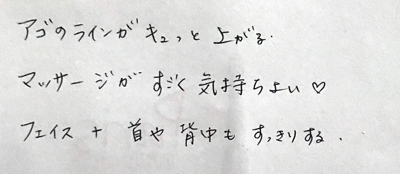 アゴのラインがキュっと上がる.
マッサージがすごく気持ちよい♡
フェイス + 首や背中もすっきりする.